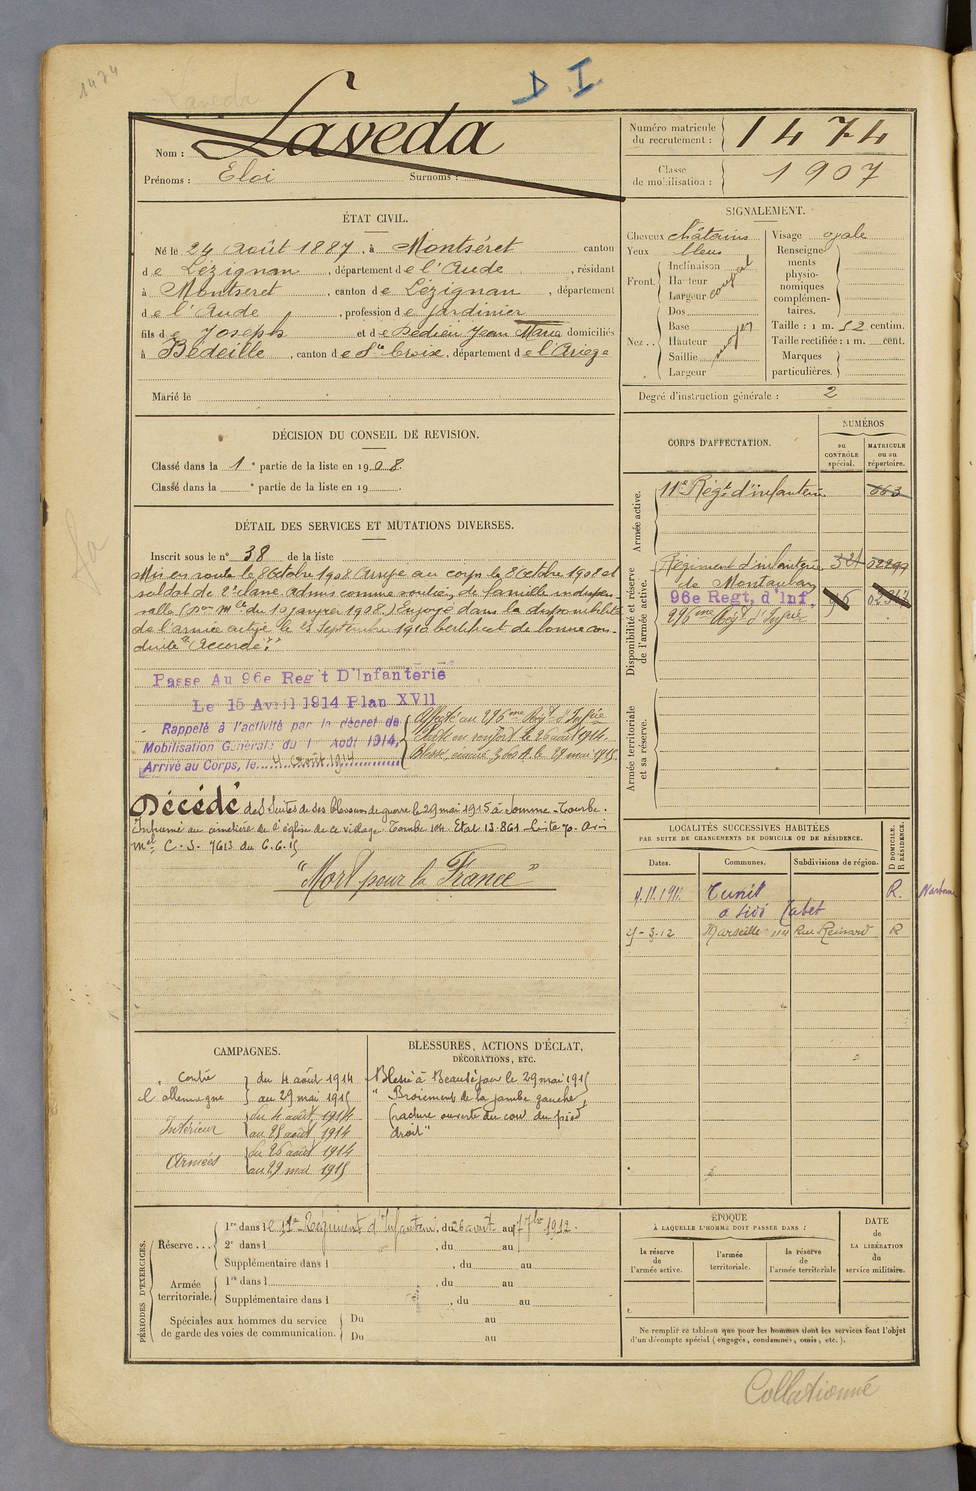 1474
Laveda
D I
Nom : Laveda
Prénoms : Eloi Surnoms :
Numéro matricule du recrutement : 1474
Classe de mobilisation : 1907
ÉTAT CIVIL.
Né le 24 Août 1887, à Montséret canton
de Lézignan, département de l'Aude, résidant
à Montseret, canton de Lézignan, département
de l'Aude, profession de Jardinier
fils de Joseph et de Dedieu Jean Marie domiciliés
à Bédeille, canton de Ste Croix, département de l'Ariege
Marié le
SIGNALEMENT.
Cheveux châtains
Yeux bleus
Front. Inclinaison
Hauteur
Largeur
Nez.. Dos
Base
Hauteur
Saillie
Largeur
moyen
Visage ovale
Renseignements physionomiques complémentaires.
Taille : 1 m. 52 centim.
Taille rectifiée : 1 m. cent.
Marques particulières.
Degré d'instruction générale : 2
DÉCISION DU CONSEIL DE REVISION.
Classé dans la 1e partie de la liste en 1908.
Classé dans la e partie de la liste en 19 .
DÉTAIL DES SERVICES ET MUTATIONS DIVERSES.
Inscrit sous le n° 38 de la liste
Mis en route le 8 Octobre 1908 Arrivé au corps le 8 Octobre 1908 et
soldat de 2e classe. Admis comme soutien de famille indispen-
sable (Don Mle du 10 janvier 1908.) Envoyé dans la disponibilité
de l'armée active le 25 Septembre 1910 Certificat de bonne con-
duite "Accordé."
Passe Au 96e Reg't D'Infanterie
Le 15 Avril 1914 Plan XVII
Rappelé à l'activité par le décret de
Mobilisation Générale du 1 Août 1914,
Arrivé au Corps, le 4 Août 1914
Affecté au 296me Régt d'Infrie
Parti en renfort le 26 août 1914.
Blessé, évacué, le 29 mai 1915.
Décédé des suites de ses blessures de guerre le 29 mai 1915 à Somme-Tourbe.
Inhumé au cimetière de l'église de ce village. Tombe 144. Etat 13.861 Liste 70. Avis
mel C.S. 7613 du 6.6.15
"Mort pour la France"
CORPS D'AFFECTATION.
NUMÉROS
au CONTRÔLE spécial.
MATRICULE ou au répertoire.
Armée active.
11e Régt d'infanterie. 663
Disponibilité et réserve de l'armée active.
Régiment d'infanterie 321 02299
de Montauban
96e Regt, d'Inf. 96 02347
296me Régt d'Infrie
Armée territoriale et sa réserve.
LOCALITÉS SUCCESSIVES HABITÉES
PAR SUITE DE CHANGEMENTS DE DOMICILE OU DE RÉSIDENCE.
Dates. Communes. Subdivisions de région. D DOMICILE. R RÉSIDENCE.
4.11.1911 Tunis R. Narbonne
a Sidi Tabet
4-3-12 Marseille 114 Rue Reinard R
CAMPAGNES.
Contre l'allemagne
du 4 août 1914
au 29 mai 1915
Intérieur
du 4 août 1914
au 25 août 1914
Armées
du 26 août 1914
au 29 mai 1915
BLESSURES, ACTIONS D'ÉCLAT,
DÉCORATIONS, ETC.
Blessé à Beauséjour le 29 mai 1915
" Broiement de la jambe gauche,
fracture ouverte du cou du pied
droit"
PÉRIODES D'EXERCICES.
Réserve...
1re dans le 11e Régiment d'Infanterie, du 26 août au 17 bre 1912.
2e dans l , du au
Supplémentaire dans l , du au
Armée territoriale.
1re dans l , du au
Supplémentaire dans l , du au
Spéciales aux hommes du service de garde des voies de communication.
Du au
Du au
ÉPOQUE
À LAQUELLE L'HOMME DOIT PASSER DANS :
la réserve de l'armée active.
l'armée territoriale.
la réserve de l'armée territoriale
DATE de LA LIBÉRATION du service militaire.
Ne remplir ce tableau que pour les hommes dont les services font l'objet
d'un décompte spécial (engagés, condamnés, omis, etc.).
Collationné